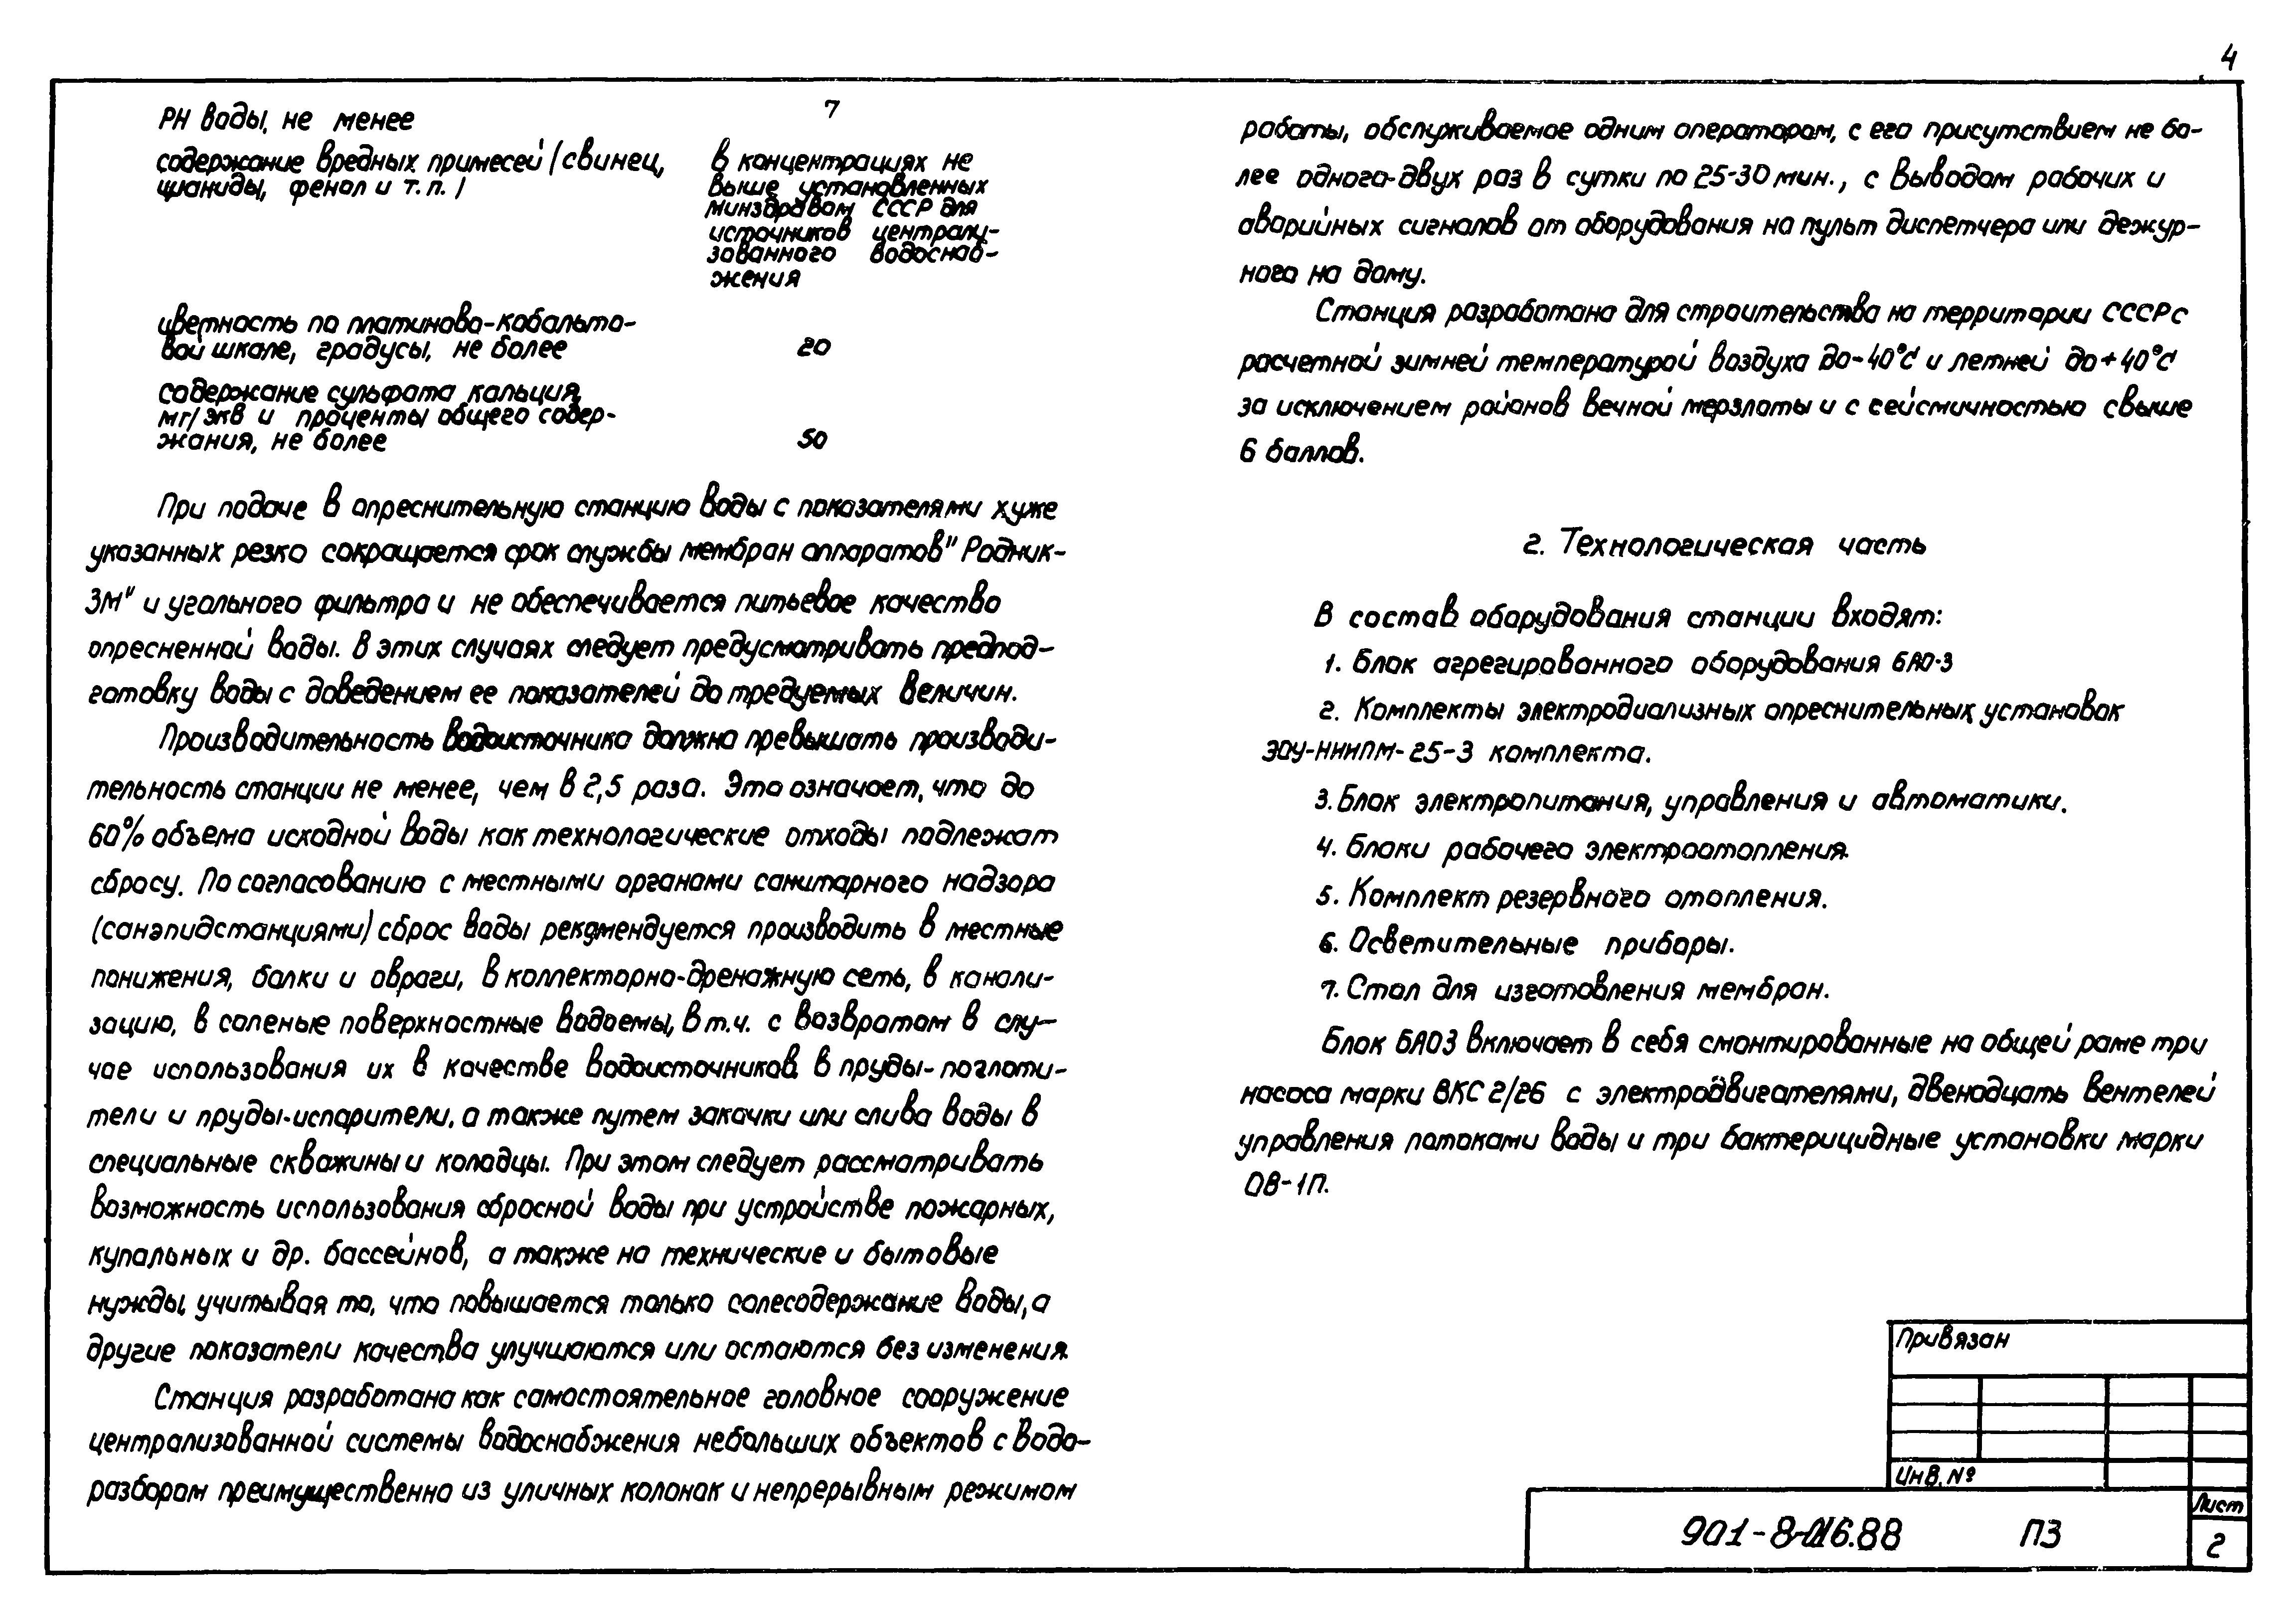 4
РН воды, не менее 7
содержание вредных примесей (свинец,
цианиды, фенол и т.п.)
в концентрациях не
выше установленных
минздравом СССР для
источников централи-
зованного водоснаб-
жения
цветность по платиново-кобальто-
вой шкале, градусы, не более 20
содержание сульфата кальция,
мг/экв и проценты общего содер-
жания, не более 50
При подаче в опреснительную станцию воды с показателями хуже
указанных резко сокращается срок службы мембран аппаратов "Родник-
3м" и угольного фильтра и не обеспечивается питьевое качество
опресненной воды. В этих случаях следует предусматривать предпод-
готовку воды с доведением ее показателей до требуемых величин.
Производительность водоисточника должна превышать производи-
тельность станции не менее, чем в 2,5 раза. Это означает, что до
60% объема исходной воды как технологические отходы подлежат
сбросу. По согласованию с местными органами санитарного надзора
(санэпидстанциями) сброс воды рекомендуется производить в местные
понижения, балки и овраги, в коллекторно-дренажную сеть, в канали-
зацию, в соленые поверхностные водоемы, в т.ч. с возвратом в слу-
чае использования их в качестве водоисточников, в пруды-поглоти-
тели и пруды-испарители, а также путем закачки или слива воды в
специальные скважины и колодцы. При этом следует рассматривать
возможность использования сбросной воды при устройстве пожарных,
купальных и др. бассейнов, а также на технические и бытовые
нужды, учитывая то, что повышается только солесодержание воды, а
другие показатели качества улучшаются или остаются без изменения.
Станция разработана как самостоятельное головное сооружение
централизованной системы водоснабжения небольших объектов с водо-
разбором преимущественно из уличных колонок и непрерывным режимом
работы, обслуживаемое одним оператором, с его присутствием не бо-
лее одного-двух раз в сутки по 25-30 мин., с выводом рабочих и
аварийных сигналов от оборудования на пульт диспетчера или дежур-
ного на дому.
Станция разработана для строительства на территории СССР с
расчетной зимней температурой воздуха до -40°С и летней до +40°С
за исключением районов вечной мерзлоты и с сейсмичностью свыше
6 баллов.
2. Технологическая часть
В состав оборудования станции входят:
1. Блок агрегированного оборудования БАО-3
2. Комплекты электродиализных опреснительных установок
ЭОУ-НИИПМ-25-3 комплекта.
3. Блок электропитания, управления и автоматики.
4. Блоки рабочего электроотопления.
5. Комплект резервного отопления.
6. Осветительные приборы.
7. Стол для изготовления мембран.
Блок БАО3 включает в себя смонтированные на общей раме три
насоса марки ВКС 2/26 с электродвигателями, двенадцать вентелей
управления потоками воды и три бактерицидные установки марки
ОВ-1П.
Привязан
Инв. №
901-8-016.88 ПЗ
Лист
2